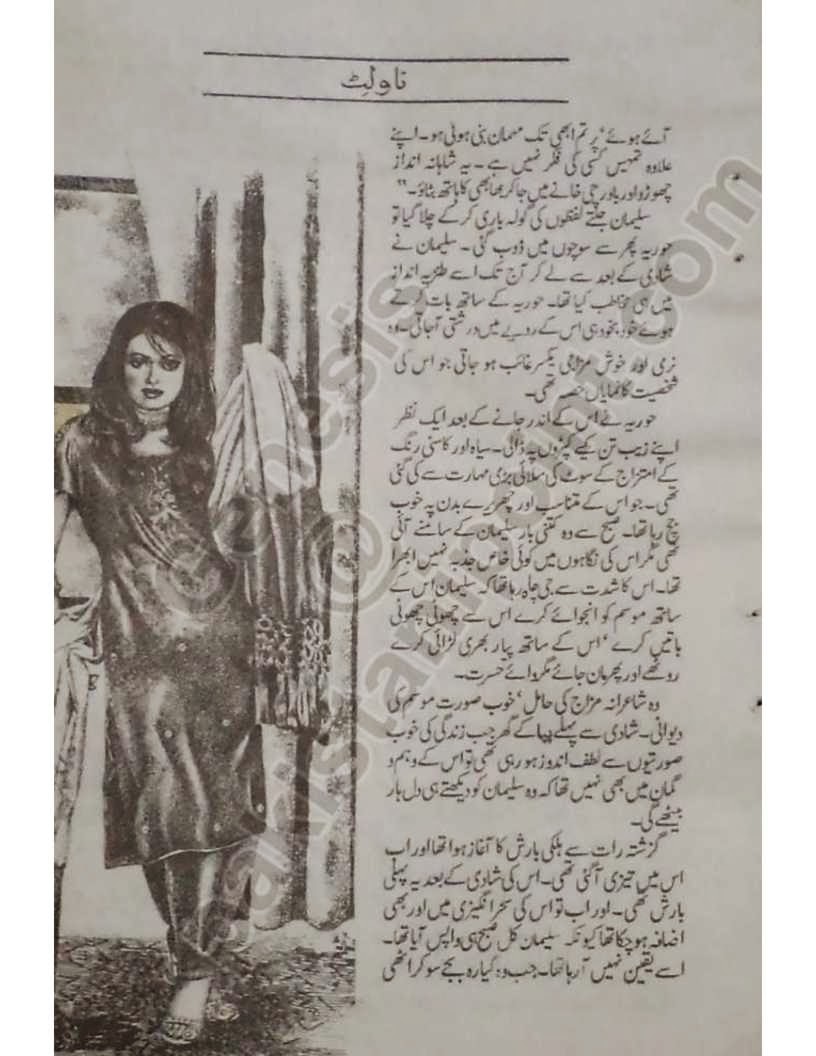 ناولٹ
آئے ہوئے، پر تم ابھی تک مہمان بنی ہوئی ہو۔ اپنے
علاوہ تمہیں کسی کی فکر نہیں ہے۔ یہ شاہانہ انداز
چھوڑو اور باورچی خانے میں جا کر بھابھی کا ہاتھ بٹاؤ۔"
سلیمان جلتے لفظوں کی گولہ باری کرکے چلا گیا تو
حوریہ پھر سے سوچوں میں ڈوب گئی۔ سلیمان نے
شادی کے بعد سے لے کر آج تک اسے طنزیہ انداز
میں ہی مخاطب کیا تھا۔ حوریہ کے ساتھ بات کرتے
ہوئے خود بخود ہی اس کے رویے میں درشتی آجاتی۔ وہ
نرمی اور خوش مزاجی یکسر غائب ہو جاتی جو اس کی
شخصیت کا نمایاں حصہ تھی۔
حوریہ نے اس کے اندر جانے کے بعد ایک نظر
اپنے زیب تن کیے کپڑوں پہ ڈالی۔ سیاہ اور کاسنی رنگ
کے امتزاج کے سوٹ کی سلائی بڑی مہارت سے کی گئی
تھی۔ جو اس کے متناسب اور چھریرے بدن پہ خوب
جچ رہا تھا۔ صبح سے وہ کتنی بار سلیمان کے سامنے آئی
تھی مگر اس کی نگاہوں میں کوئی خاص جذبہ نہیں ابھرا
تھا۔ اس کا شدت سے جی چاہ رہا تھا کہ سلیمان اس کے
ساتھ موسم کو انجوائے کرے اس سے چھوٹی چھوٹی
باتیں کرے، اس کے ساتھ پیار بھری لڑائی کرے
روٹھے اور پھر مان جائے مگر وائے حسرت۔
وہ شاعرانہ مزاج کی حامل، خوب صورت موسم کی
دیوانی۔ شادی سے پہلے پپا کے گھر جب زندگی کی خوب
صورتیوں سے لطف اندوز ہو رہی تھی تو اس کے وہم و
گمان میں بھی نہیں تھا کہ وہ سلیمان کو دیکھتے ہی دل ہار
بیٹھے گی۔
گزشتہ رات سے ہلکی بارش کا آغاز ہوا تھا اور اب
اس میں تیزی آگئی تھی۔ اس کی شادی کے بعد یہ پہلی
بارش تھی۔ اور اب تو اس کی سحر انگیزی میں اور بھی
اضافہ ہو چکا تھا کیونکہ سلیمان کل صبح ہی واپس آیا تھا۔
اسے یقین نہیں آرہا تھا۔ جب وہ گیارہ بجے سو کر اٹھی